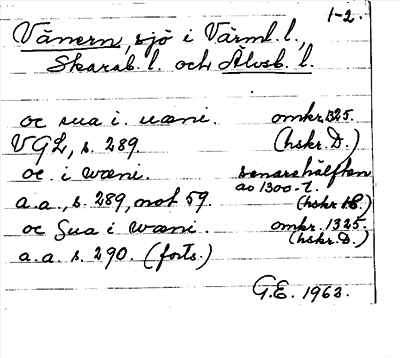 1-2.
Vänern, sjö i Värml. l.,
Skarab. l. och Älvsb. l.
oc sua i uæni. omkr. 1325.
VGL, s. 289. (hskr. D.)
oc i wæni. senare hälften
av 1300-t.
a.a., s. 289, not 59. (hskr. B.)
oc Sua i wæni. omkr. 1325.
(hskr. D.)
a.a. s. 290. (forts.)
G.E. 1963.